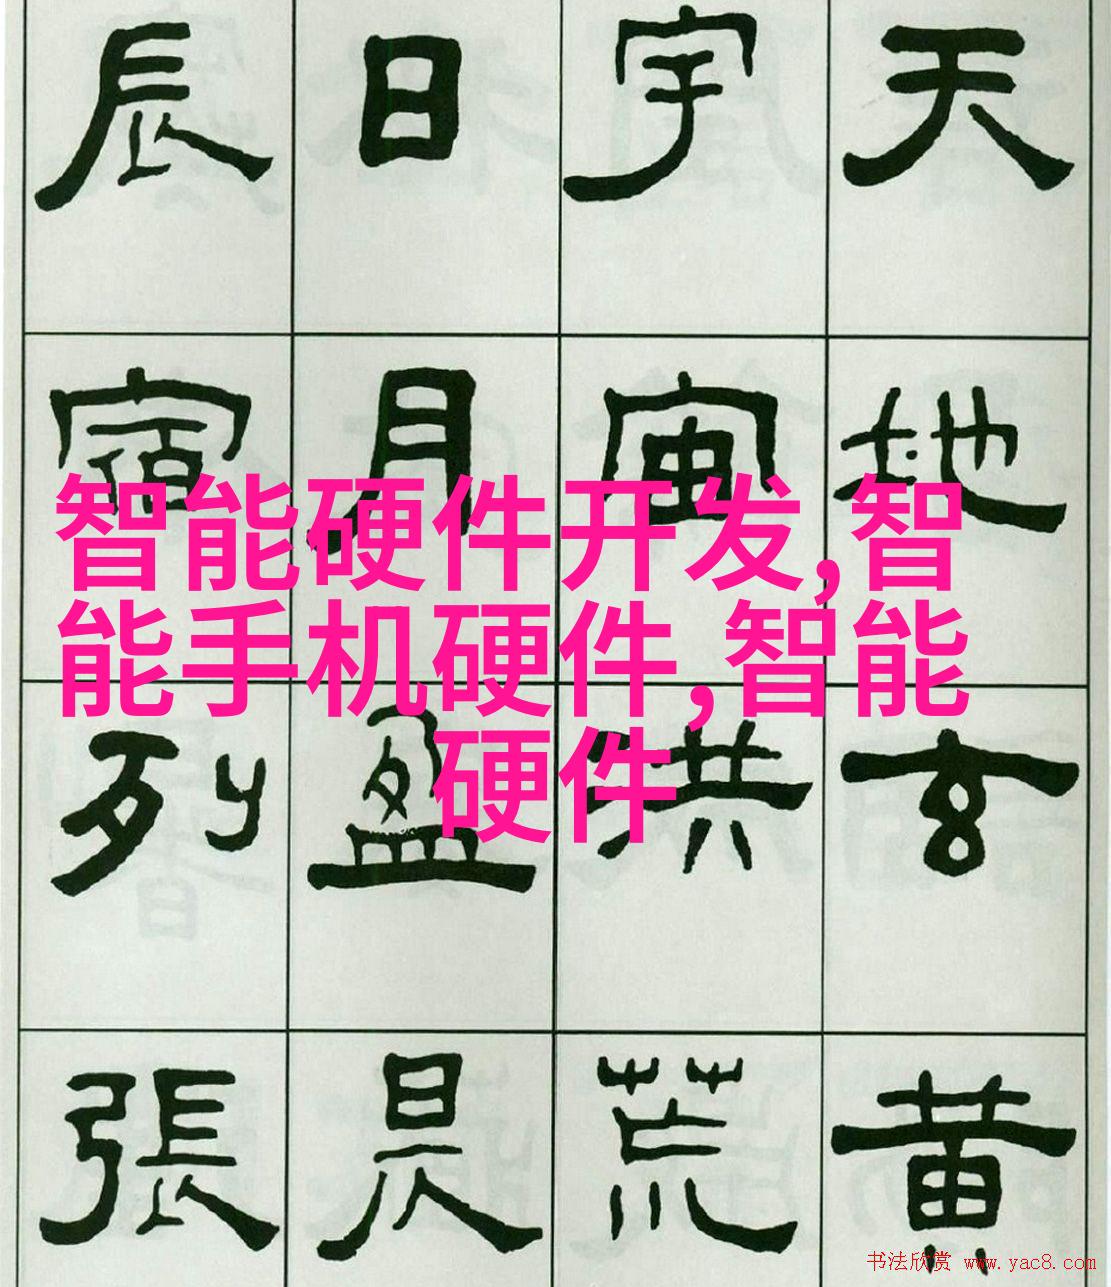 天地玄黄
宇宙洪荒
日月盈昃
辰宿列張
智能硬件开发,智
能手机硬件,智能
硬件
书法欣赏 www.yac8.com